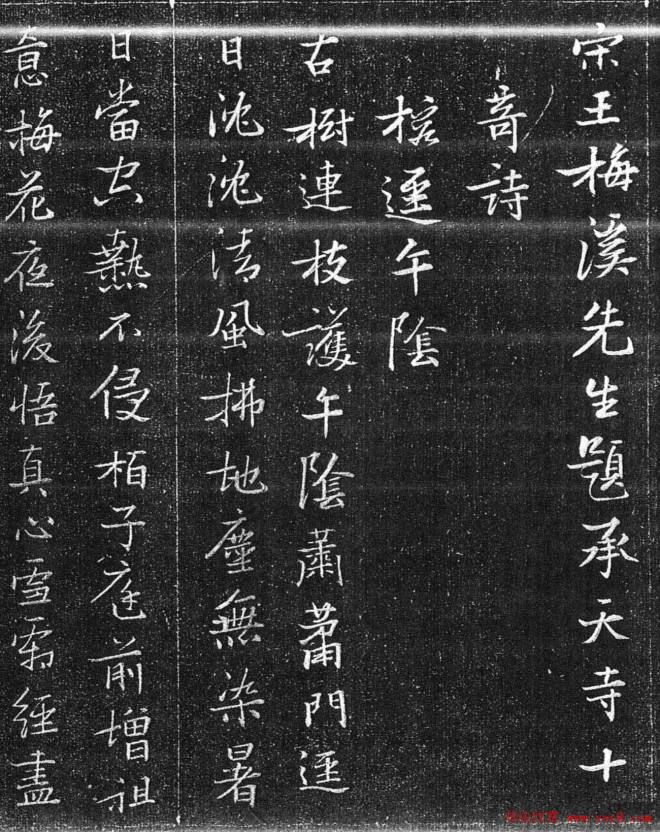 宋王梅溪先生題承天寺十
奇詩
榕逕午陰
古樹連枝護午陰蕭蕭門逕
日沈沈清風拂地塵無染暑
日當空熱不侵栢子庭前增祖
意梅花夜後悟真心雪霜經盡